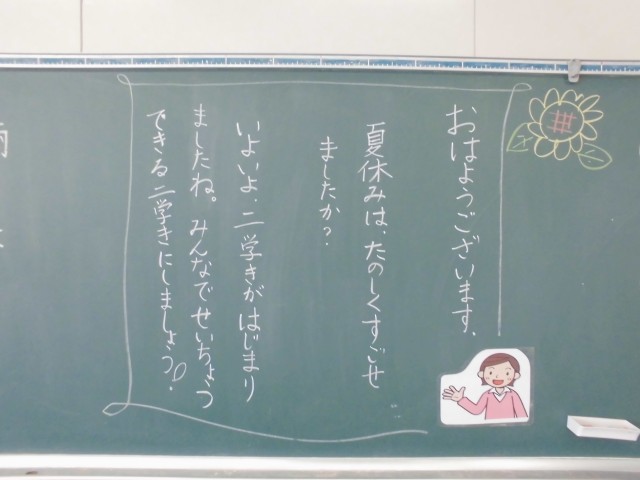 おはようございます、
夏休みは、たのしくすごせ
ましたか？
いよいよ、二学きがはじまり
ましたね。みんなでせいちょう
できる二学きにしましょう！